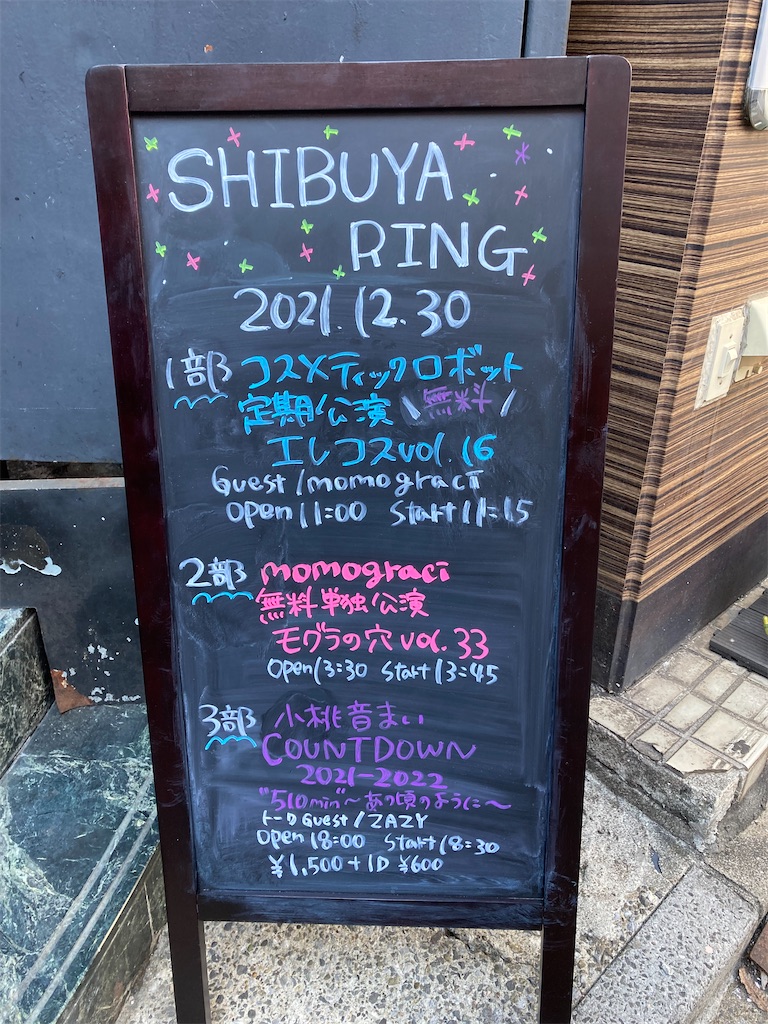 SHIBUYA
RING
2021.12.30
1部 コスメティックロボット
定期公演 \無料/
エレコスvol.16
Guest/momograci
open 11:00 Start 11:15
2部 momograci
無料単独公演
モグラの穴 vol.33
Open 13:30 Start 13:45
3部 小桃音まい
COUNTDOWN
2021-2022
"510min"~あの頃のように~
トークGuest/ZAZY
Open 18:00 Start 18:30
¥1,500+1D ¥600